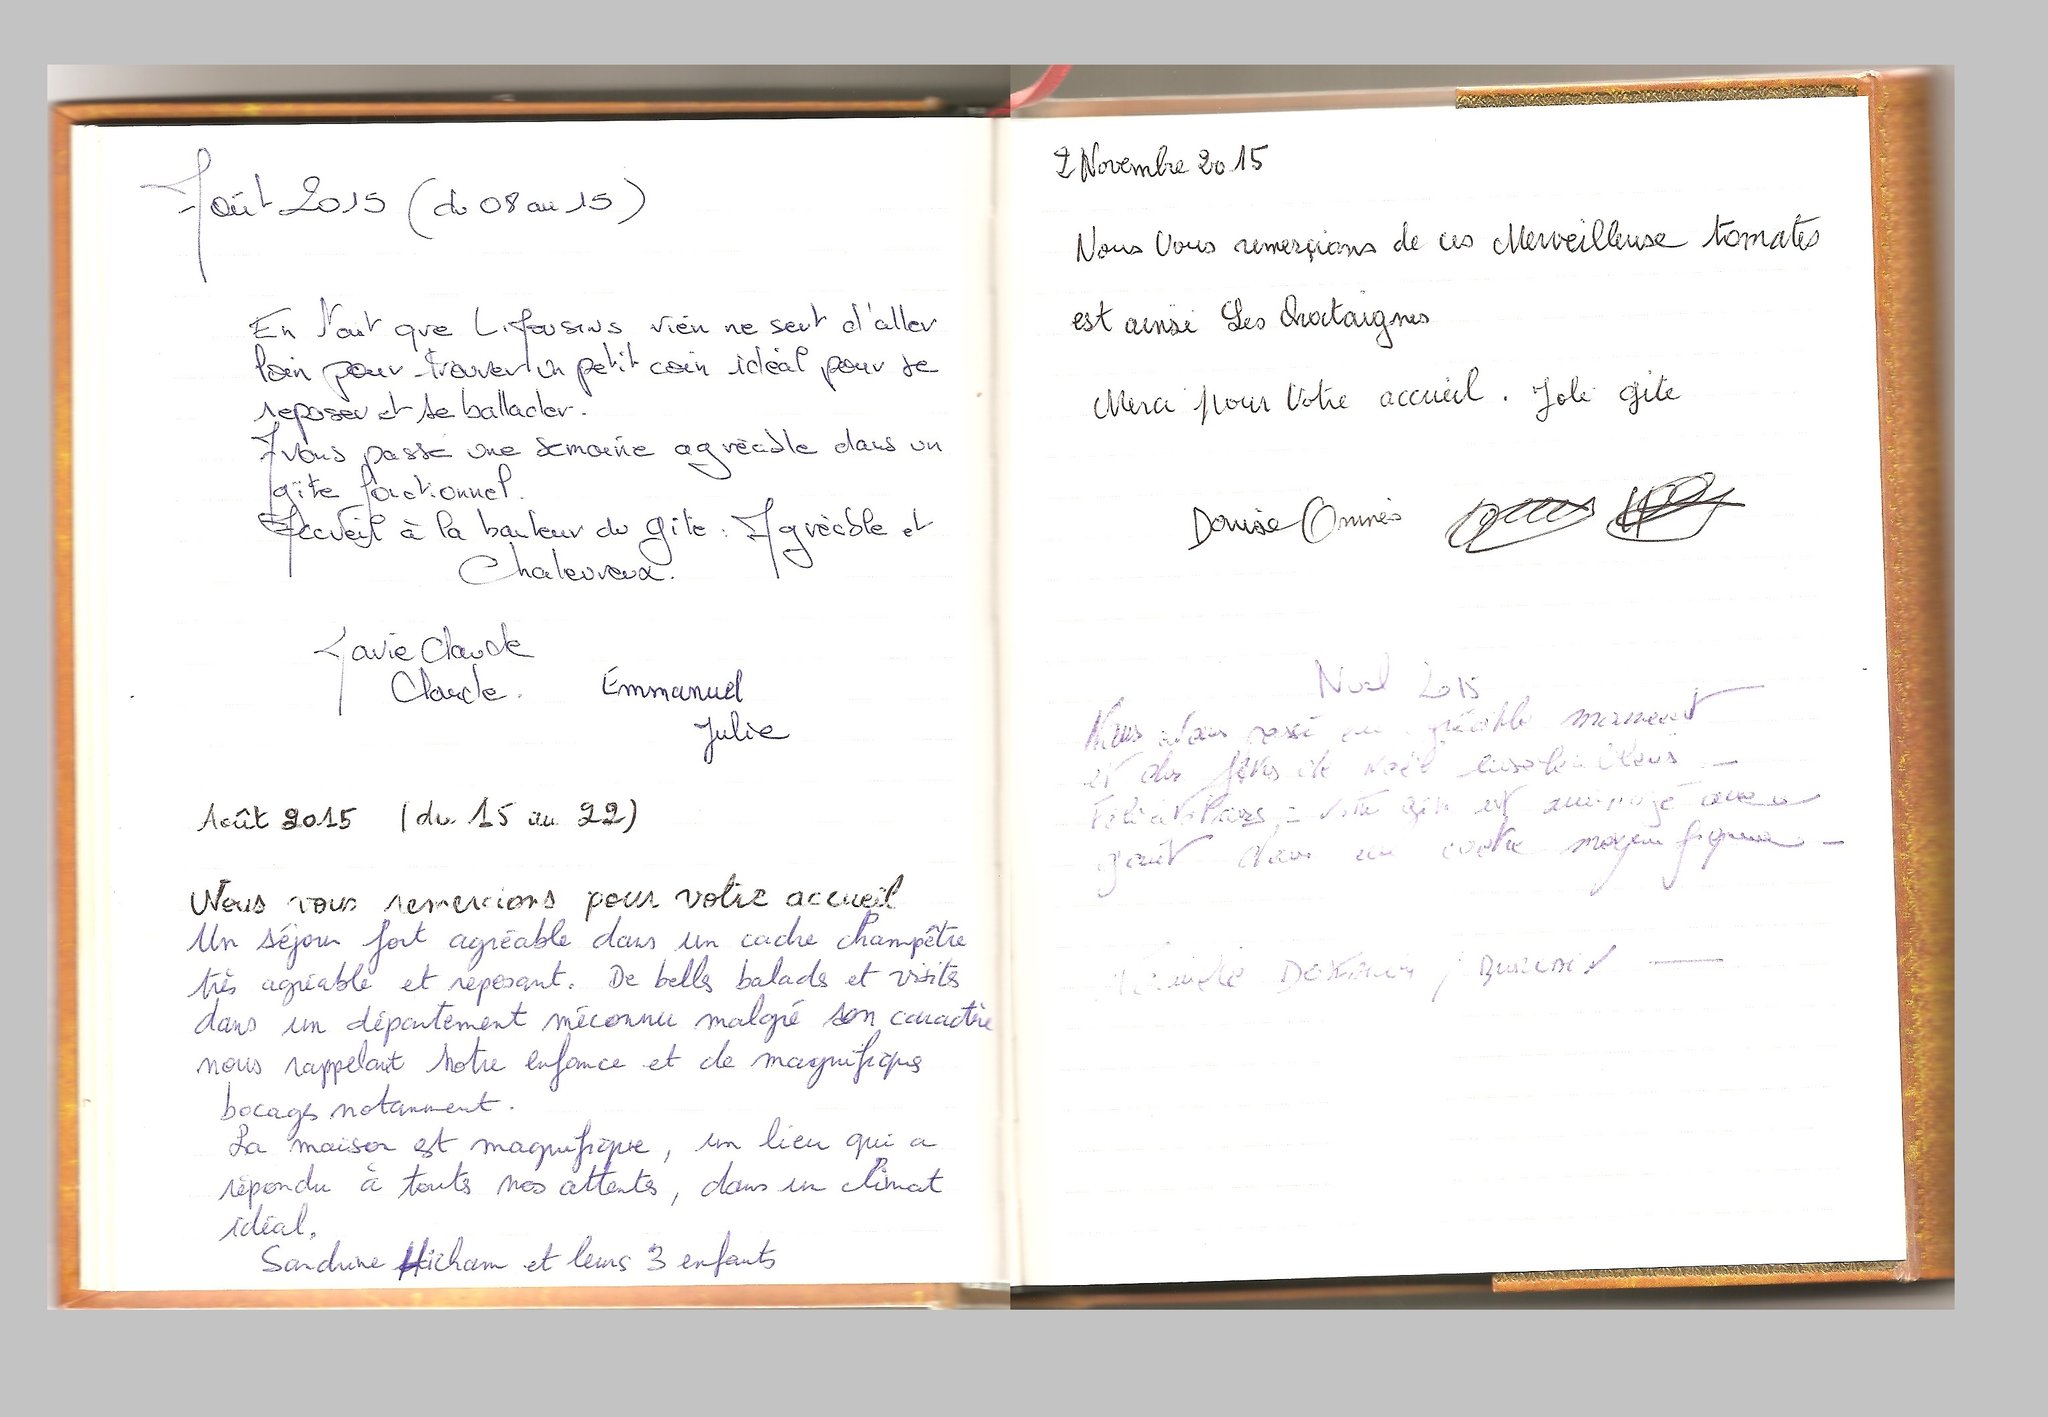 Août 2015 (du 08 au 15)
En tant que Limousins rien ne sert d'aller
loin pour trouver un petit coin idéal pour se
reposer et se ballader.
Avons passé une semaine agréable dans un
gîte fonctionnel.
Accueil à la hauteur du gite : Agréable et
Chaleureux.
Marie Claude
Claude. Emmanuel
Julie
Août 2015 (du 15 au 22)
Nous vous remercions pour votre accueil
Un séjour fort agréable dans un cadre champêtre
très agréable et reposant. De belles balades et visites
dans un département méconnu malgré son caractère
nous rappelant notre enfance et de magnifiques
bocages notamment.
La maison est magnifique, un lieu qui a
répondu à toutes nos attentes, dans un climat
idéal.
Sandrine Hicham et leurs 3 enfants
2 Novembre 2015
Nous Vous remerçions de ces Merveilleuse tomates
est ainsi Les Chataignes
Merci pour Votre accueil. Joli gite
Noel 2015
Nous avons passé un agréable moment
et des fêtes de Noël ensoleillées -
Félicitations, - votre gite est aménagé avec
goût dans un cadre magnifique -